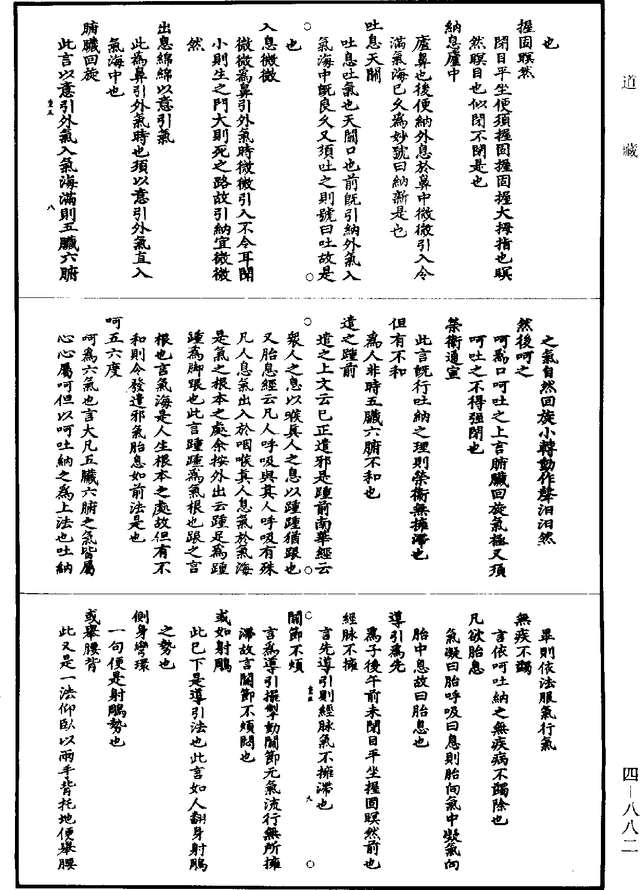 道藏
也
握固瞑然
閉目平坐便須握固握固握大拇指也瞑
然瞑目也似閉不閉是也
納息廬中
廬鼻也後便納外息於鼻中微微引入令
滿氣海已久爲妙號曰納新是也
吐息天關
吐息吐氣也天關口也前既引納外氣入
氣海中既良久又須吐之則號曰吐故是
也
入息微微
微微爲鼻引外氣時微微引入不令耳聞
小則生之門大則死之路故引納宜微微
然
出息綿綿以意引氣
此爲鼻引外氣時也須以意引外氣直入
氣海中也
腑臟回旋
此言以意引外氣入氣海滿則五臟六腑
八
之氣自然回旋小轉動作聲汩汩然
然後呵之
呵爲口呵吐之上言腑臟回旋氣極又須
呵吐之不得强閉也
榮衛通宣
此言既行吐納之理則榮衛無擁滯也
但有不和
爲人非時五臟六腑不和也
遣之踵前
遣之上文云巳正遣邪是踵前南華經云
衆人之息以喉真人之息以踵踵猶跟也
又胎息經云凡人呼吸與其人呼吸有殊
凡人息氣出入於咽喉真人息氣於氣海
是氣之根本之處余按外出云踵足爲踵
踵爲脚跟也此言踵踵爲氣根也跟之言
根也言氣海是人生根本之處故但有不
和則令發遣邪氣胎息如前法是也
呵五六度
呵爲六氣也言大凡五臟六腑之氣皆屬
心心屬呵但以呵吐納之爲上法也吐納
畢則依法服氣行氣
無疾不蠲
言依呵吐納之無疾病不蠲除也
凡欲胎息
氣凝曰胎呼吸曰息則胎向氣中凝氣向
胎中息故曰胎息也
導引爲先
爲子後午前未閉目平坐握固瞑然前也
經脉不擁
言先導引則經脉氣不擁滯也
九
關節不煩
言爲導引掘掣動關節元氣流行無所擁
滯故言關節不煩悶也
或如射鵰
此已下是導引法也此言如人翻身射鵰
之勢也
側身彎環
一句便是射鵰勢也
或舉腰背
此又是一法仰臥以兩手背托地便舉腰
四—八八二